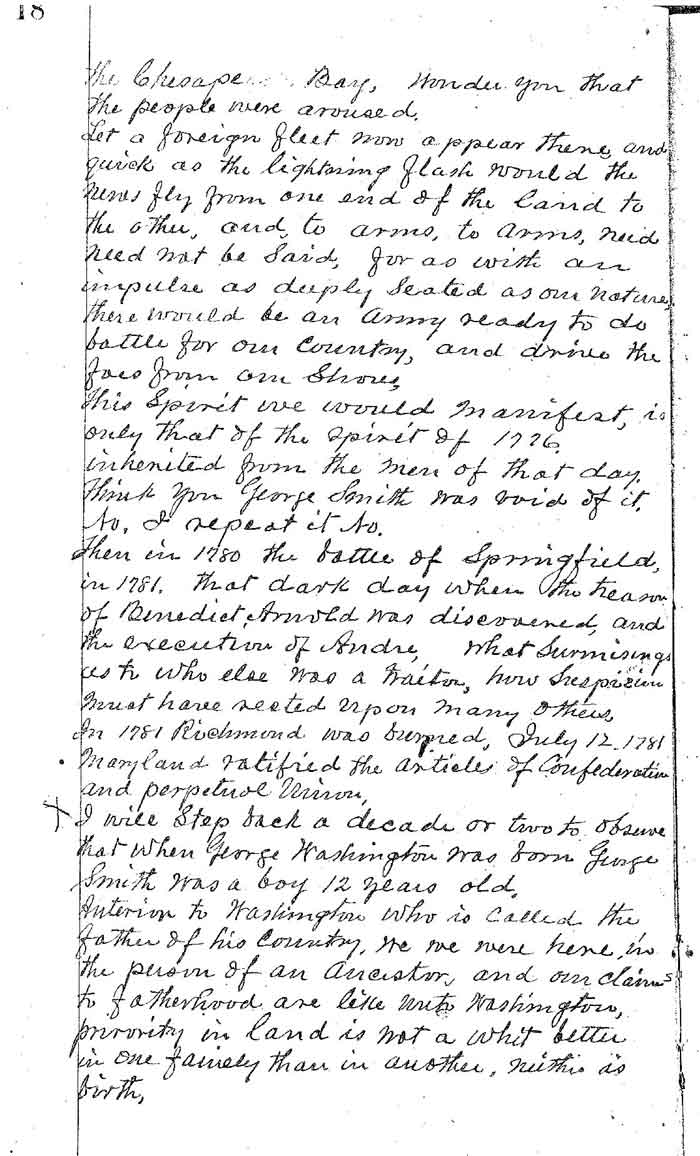 18
the Chesape Bay, Wonder you that
the people were aroused.
Let a foreign fleet now appear there, and
quick as the lightning flash would the
news fly from one end of the land to
the other, and, to arms, to arms, need
need not be said, for as with an
impulse as deeply seated as our nature,
there would be an Army ready to do
battle for our Country, and drive the
foes from our Shores,
This Spirit we would Manifest, is
only that of the spirit of 1776,
inherited from the men of that day.
Think you George Smith was void of it.
No, I repeat it No.
Then in 1780 the battle of Springfield,
in 1781. that dark day when the treason
of Benedict Arnold was discovered, and
the execution of Andre, What Surmisings
as to who else was a traitor, how Suspicion
Must have rested upon many others,
In 1781 Richmond was burned, July 12, 1781
Maryland ratified the articles of Confederation
and perpetual Union,
X I will Step back a decade or two to observe
that when George Washington was born George
Smith was a boy 12 years old,
Anterior to Washington who is called the
father of his Country, we we were here, in
the person of an Ancestor, and our claims
to fatherhood are like unto Washington,
priority in land is not a whit better
in one family than in another, neither is
birth,